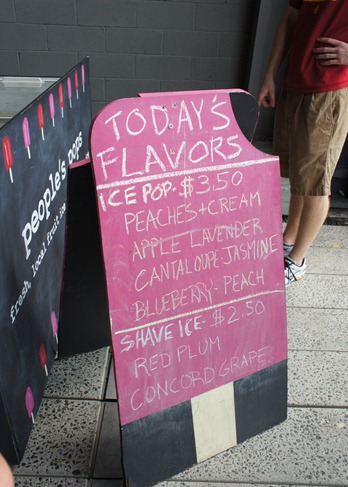 people's pops
fresh, local fruit ice
TODAY'S
FLAVORS
ICE POP - $3.50
PEACHES + CREAM
APPLE LAVENDER
CANTALOUPE-JASMINE
BLUEBERRY - PEACH
SHAVE ICE - $2.50
RED PLUM
CONCORD GRAPE